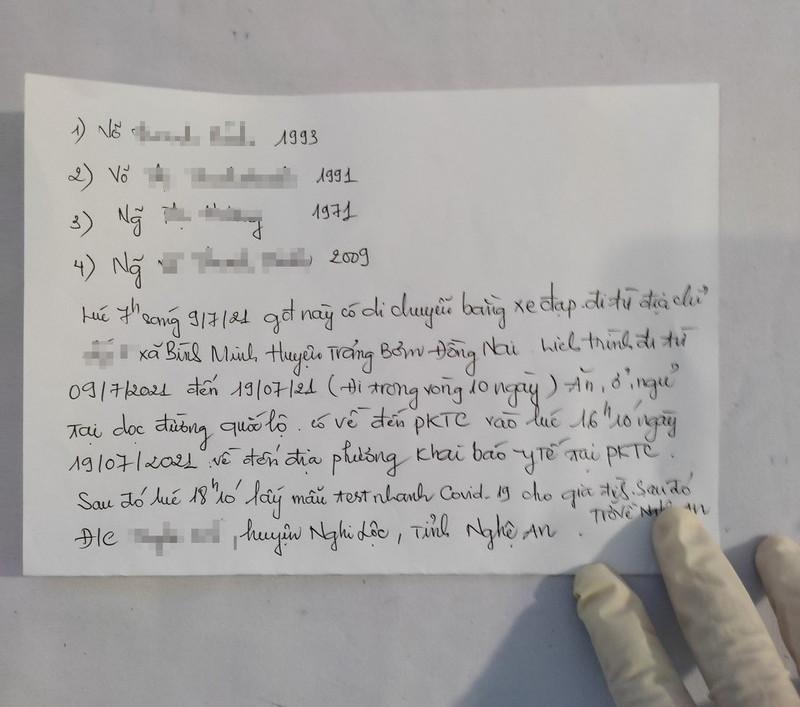 1) Võ 1993
2) Võ 1991
3) Ng̃ 1971
4) Ng̃ 2009
Lúc 7h sáng 9/7/21 gđ này có di chuyển bằng xe đạp. đi từ địa chỉ
xã Bình Minh Huyện Trảng Bơm Đồng Nai. Lịch trình đi từ
09/7/2021 đến 19/07/21 (Đi trong vòng 10 ngày) Ăn, ở, ngủ
tại dọc đường quốc lộ. có về đến PKTC vào lúc 16h10' ngày
19/07/2021. về đến địa phương khai báo y tế tại PKTC.
Sau đó lúc 18h10' lấy mẫu test nhanh Covid-19 cho gia đ̀. Sau đó
Trở về Nghệ An
Đ/c , huyện Nghi Lộc, Tỉnh Nghệ An.